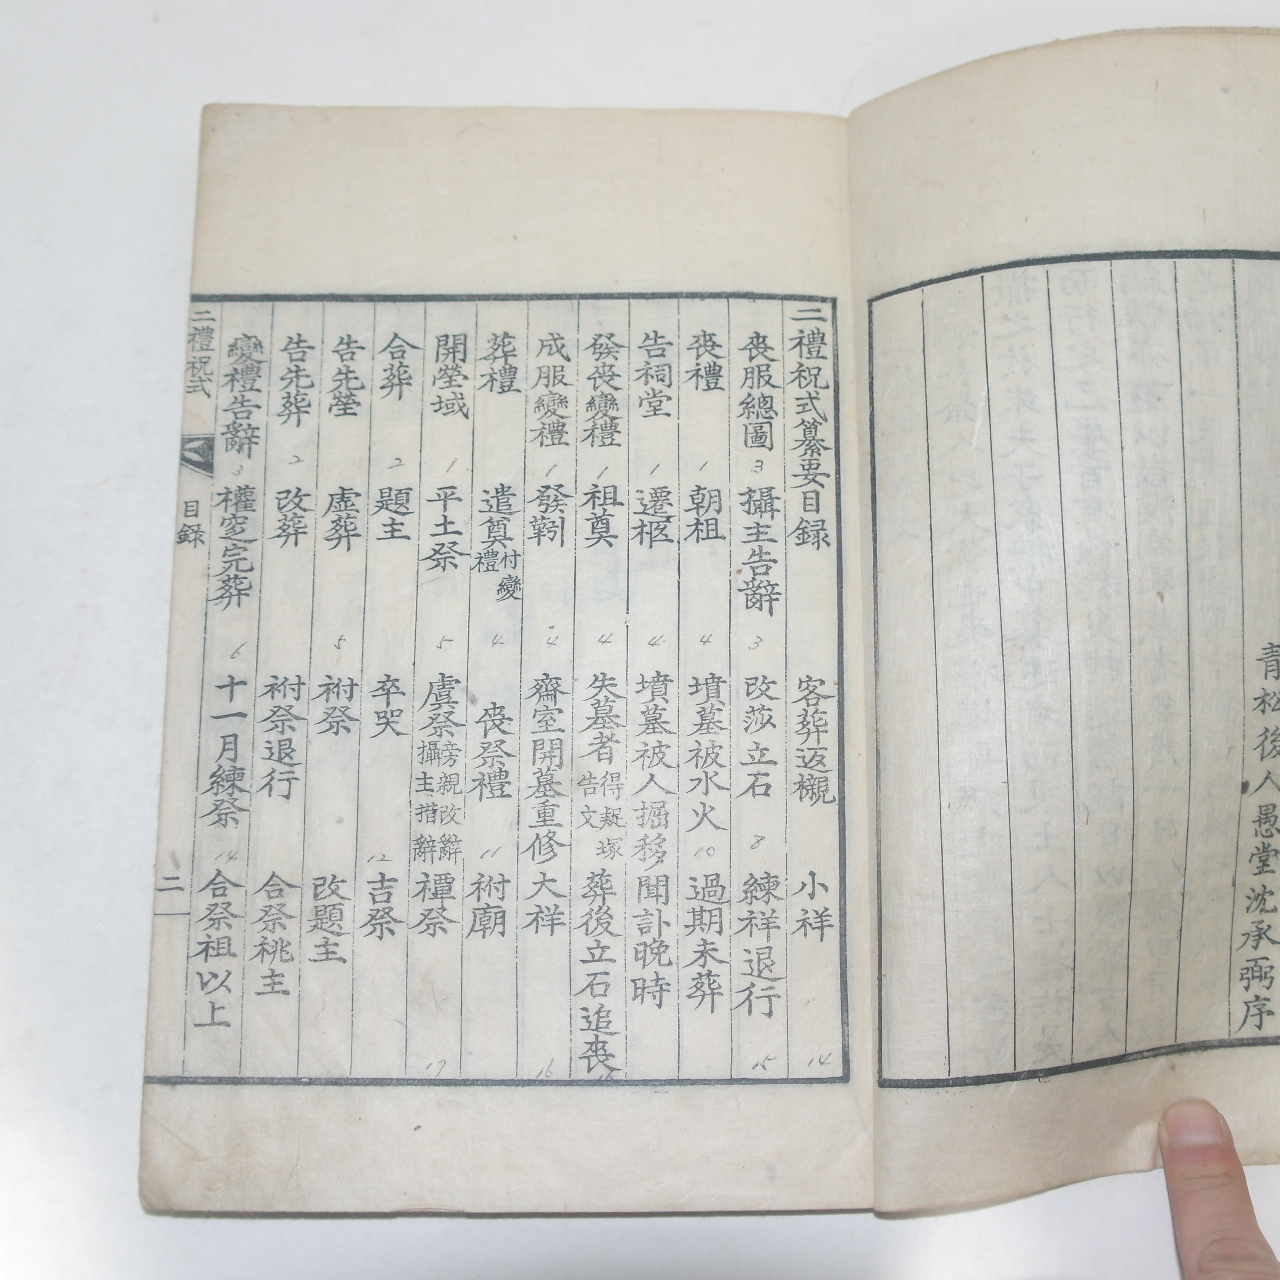 青松後人愚堂沈承弼序
二禮祝式纂要目録 客葬返櫬 小祥 14
喪服總圖 3 攝主告辭 3 改莎立石 8 練祥退行 15
喪禮 1 朝祖 4 墳墓被水火 10 過期未葬
告祠堂 1 遷柩 4 墳墓被人掘移 聞訃晩時
發喪變禮 1 祖奠 4 失墓者 得疑塚告文 葬後立石追喪
成服變禮 1 發靷 4 齋室開墓重修 大祥 16
葬禮 遣奠 付變禮 4 喪祭禮 11 祔廟
開塋域 1 平土祭 5 虞祭 旁親改辭攝主措辭 禫祭 17
合葬 2 題主 卒哭 12 吉祭
告先塋 虛葬 5 祔祭 改題主
告先葬 2 改葬 祔祭退行 合祭祧主
變禮告辭 3 權窆完葬 6 十一月練祭 14 合祭祖以上
二禮祝式 目録 二